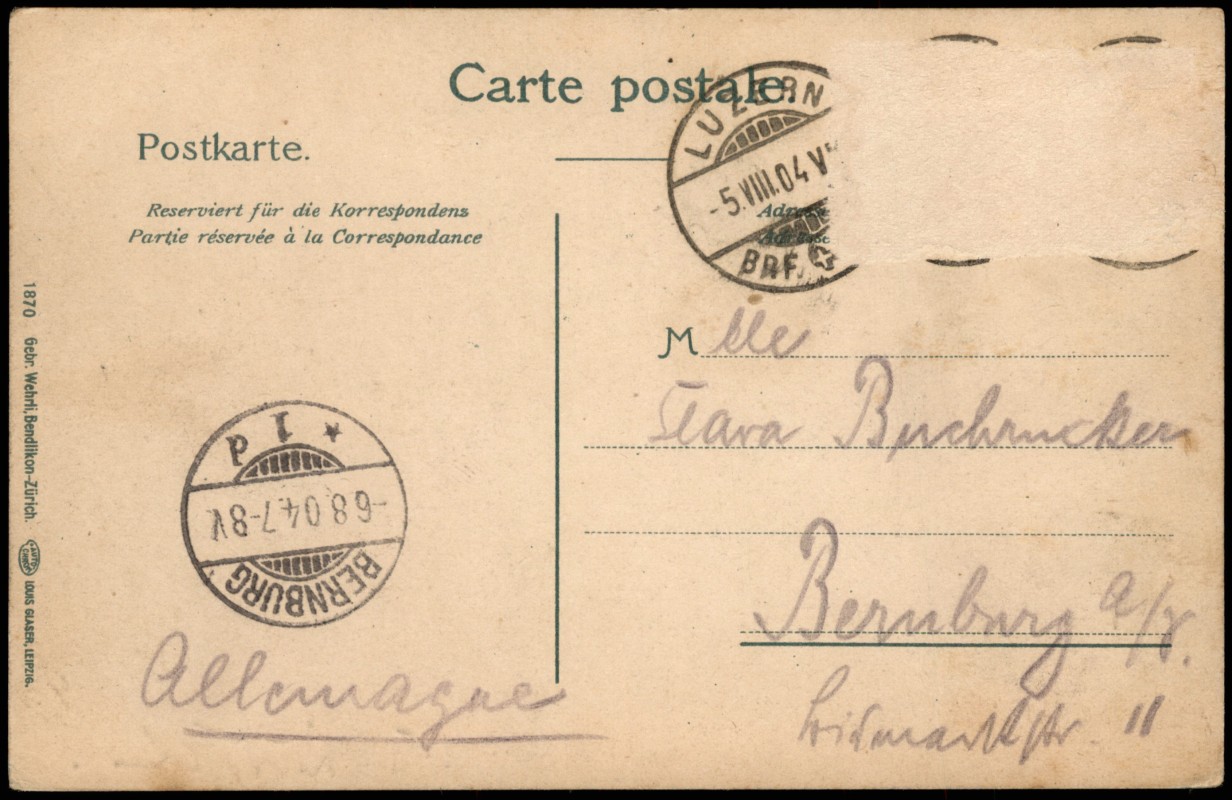 Carte postale.
Postkarte.
Reserviert für die Korrespondenz
Partie réservée à la Correspondance
LUZERN
-5.VIII.04 V
BRF.
Adresse
Adresse
Mlle
Clara Buchrucker
Bernburg a/S.
Bismarckstr. 11
Allemagne
* 1 d
-6.8.04.7-8V.
BERNBURG
1870 Gebr. Wehrli, Bendlikon-Zürich. AUTO CHROM LOUIS GLASER, LEIPZIG.